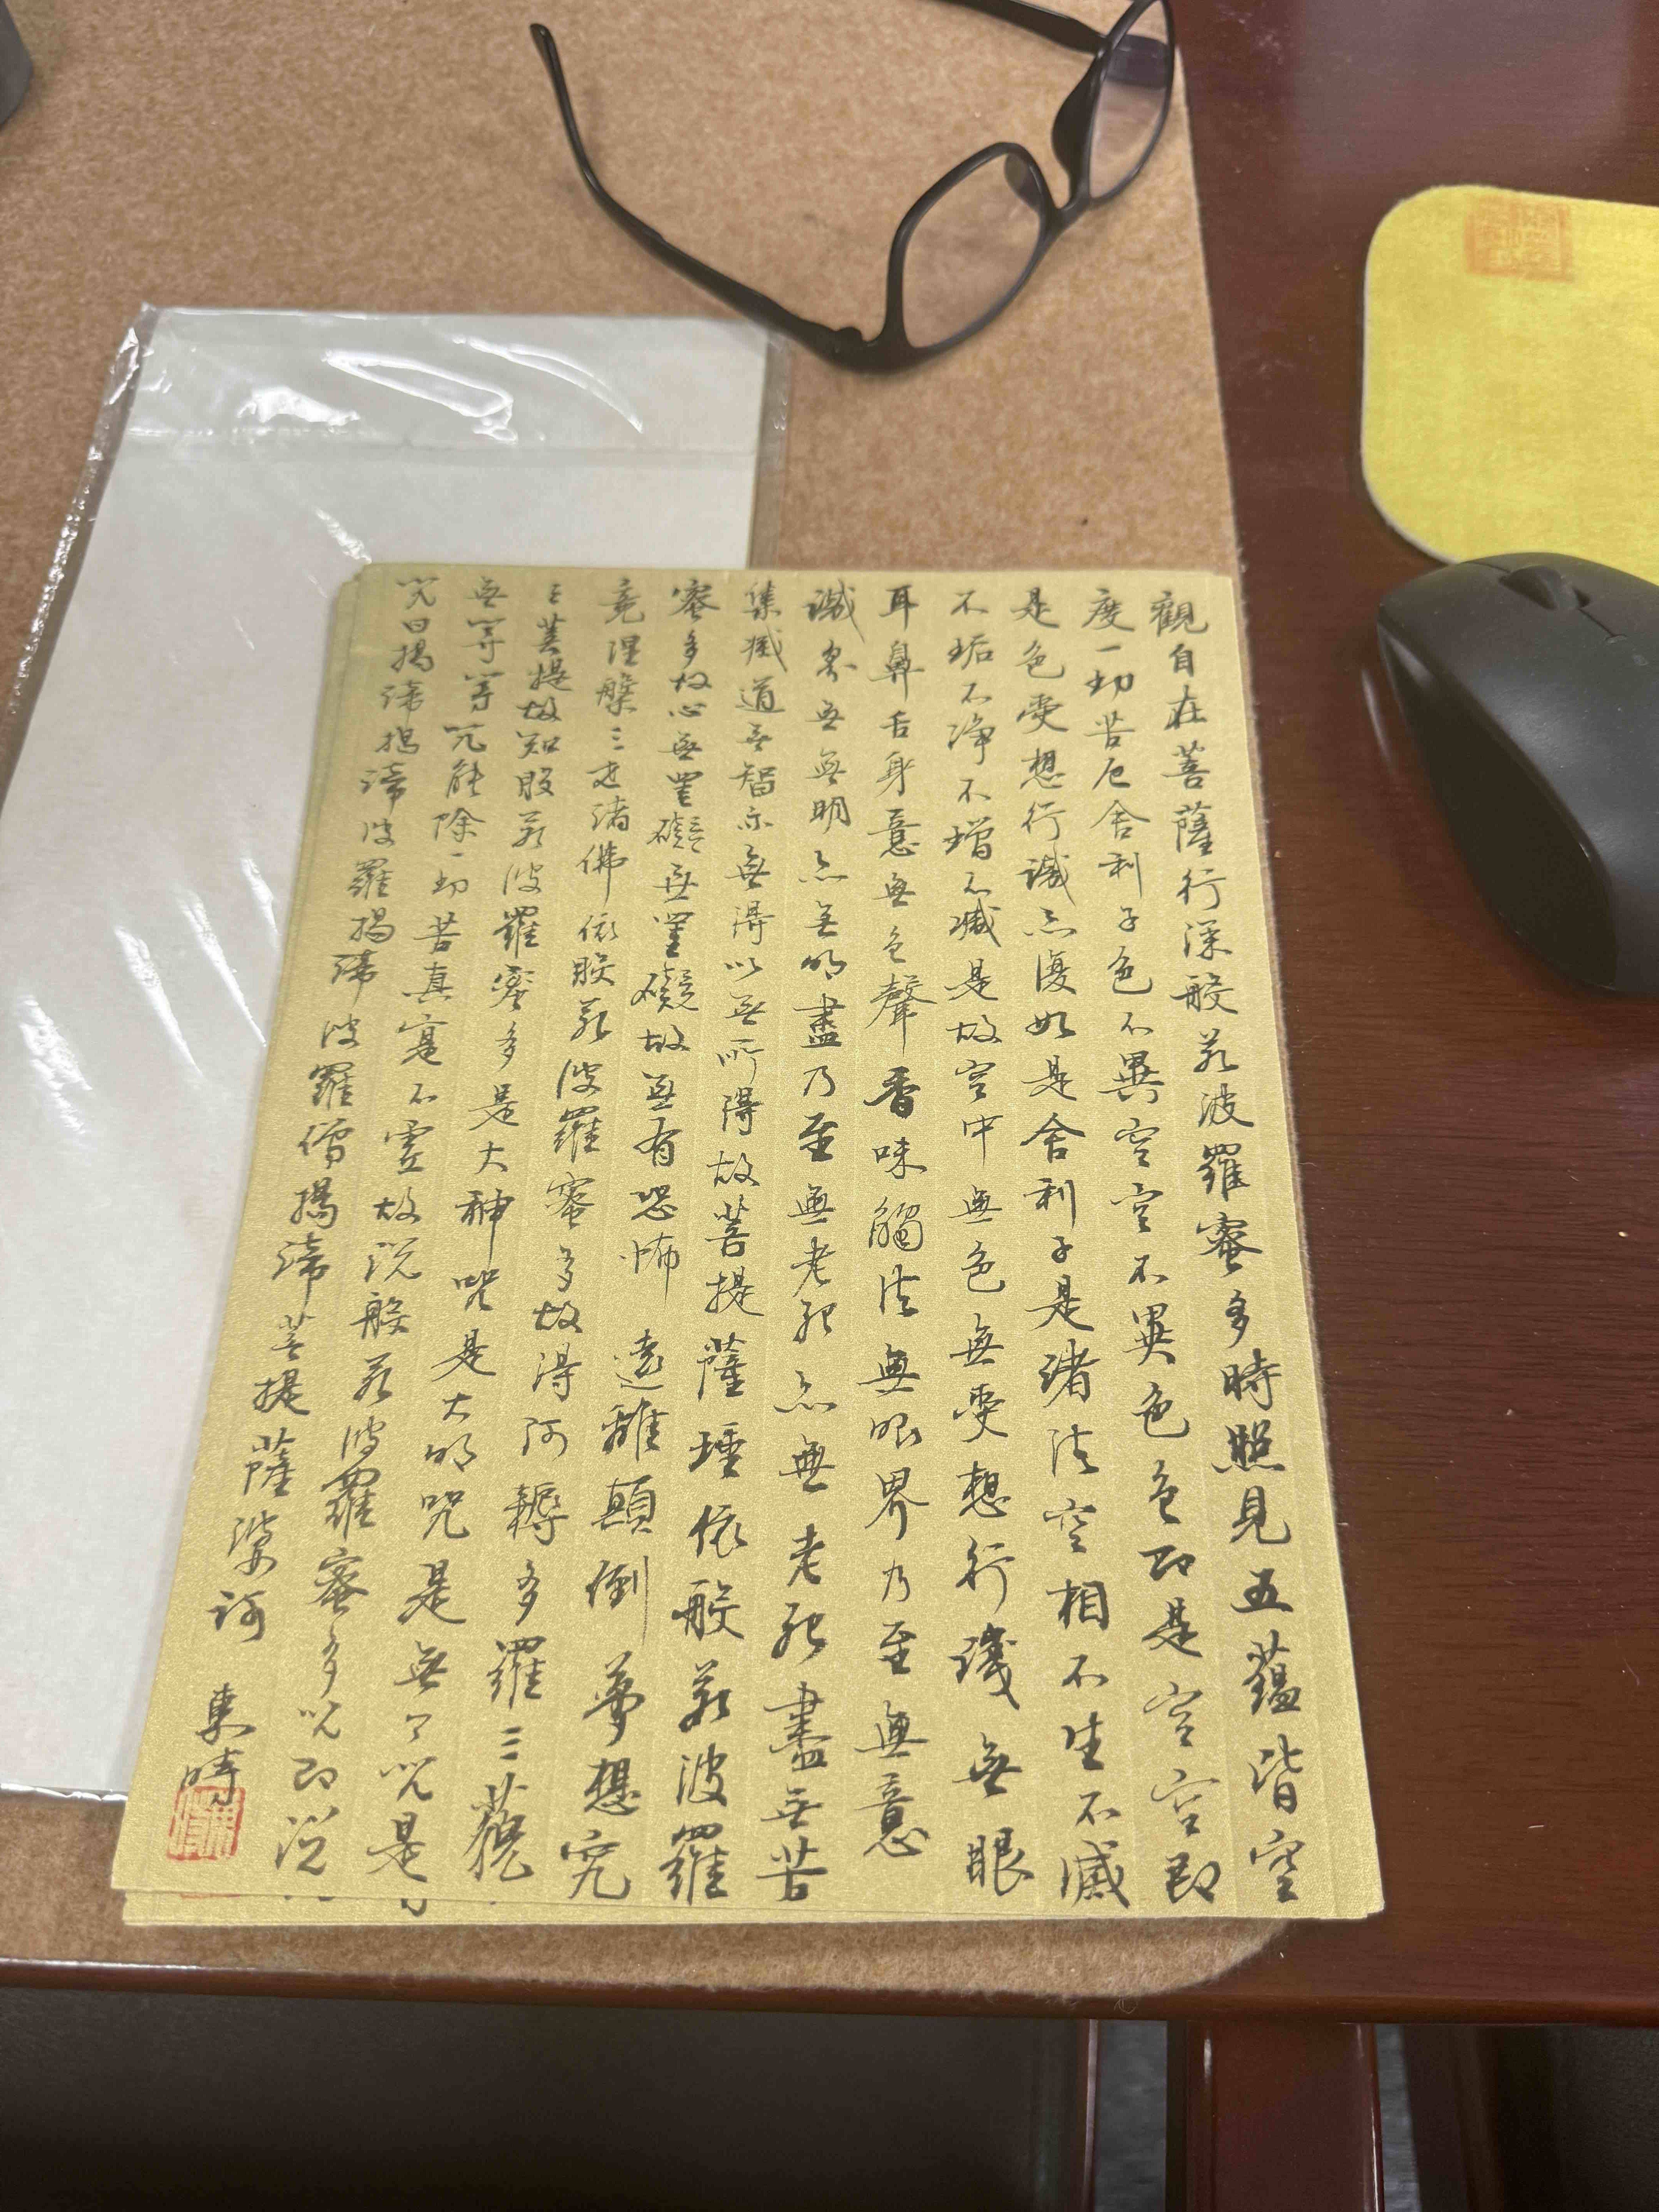 觀自在菩薩行深般若波羅蜜多時照見五蘊皆空
度一切苦厄舍利子色不異空空不異色色即是空空即
是色受想行識亦復如是舍利子是諸法空相不生不滅
不垢不淨不增不減是故空中無色無受想行識無眼
耳鼻舌身意無色聲香味觸法無眼界乃至無意
識界無無明亦無明盡乃至無老死亦無老死盡無苦
集滅道無智亦無得以無所得故菩提薩埵依般若波羅
蜜多故心無罣礙無罣礙故無有恐怖遠離顛倒夢想究
竟涅槃三世諸佛依般若波羅蜜多故得阿耨多羅三藐
三菩提故知般若波羅蜜多是大神咒是大明咒是無上咒是
無等等咒能除一切苦真實不虛故說般若波羅蜜多咒即說
咒曰揭諦揭諦波羅揭諦波羅僧揭諦菩提薩婆訶 東時